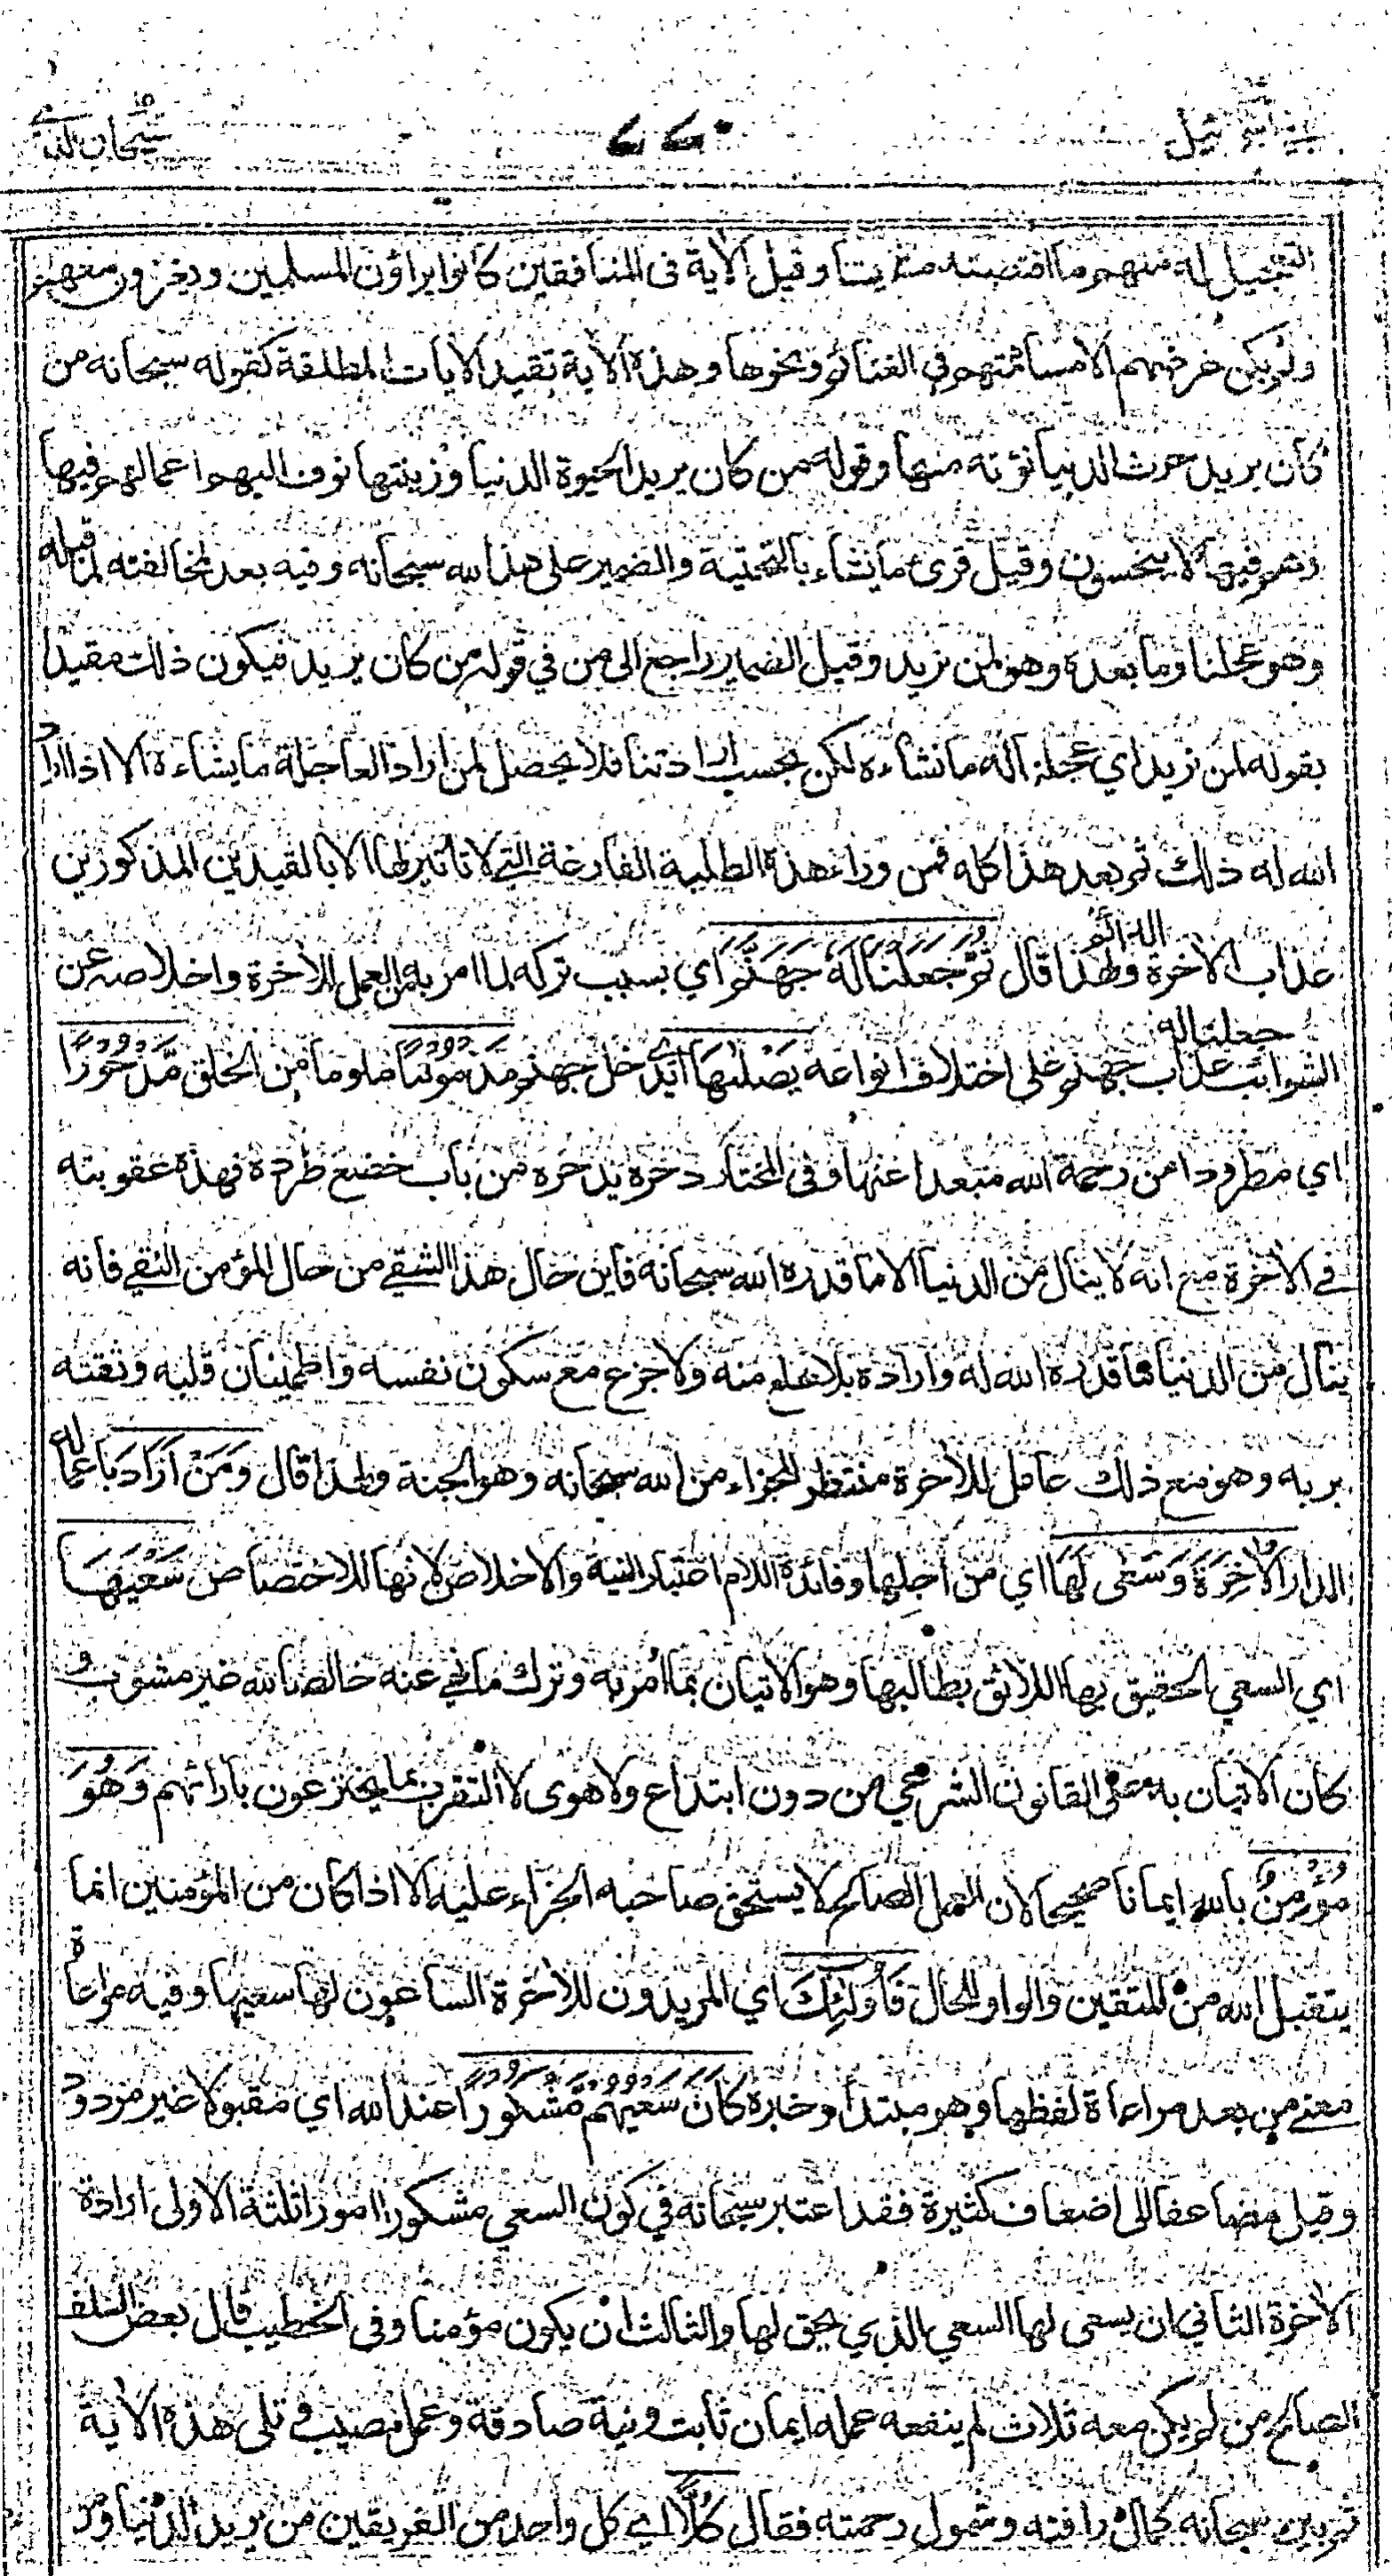 سبحان الذي ٧٧٠ بني اسرائيل
التعجيل له منهم ما اقتضته مشيتنا وقيل الأية في المنافقين كانوا يراؤن المسلمين ويغزون معهم
ولم يكن غرضهم الا مساهمتهم في الغنائم ونحوها وهذه الأية تقيد الايات المطلقة كقوله سبحانه من
كان يريد حرث الدنيا نؤته منها وقوله من كان يريد الحيوة الدنيا وزينتها نوف اليهم اعمالهم فيها
وهم فيها لا يبخسون وقيل قرئ ما يشاء بالتحتية والضمير على هذا لله سبحانه وفيه بعد لمخالفته لما قبله
وهو عجلنا وما بعده وهو لمن نريد وقيل الضمير راجع الى من في قوله من كان يريد فيكون ذلك مقيدا
بقوله لمن نريد اي عجلنا له ما نشاءه لكن بحسب ارادتنا فلا يحصل لمن اراد العاجلة ما يشاءه الا اذا اراد
الله له ذلك ثم بعد هذا كله فمن وراء هذه الطلبة الفارغة التي لا تاثير لها الا بالقيدين المذكورين
عذاب الأخرة الدائم ولهذا قال ثُمَّ جَعَلْنَا لَهُ جَهَنَّمَ اي بسبب تركه لما امر به من العمل للأخرة واخلاصه عن
الشوائب جعلنا له عذاب جهنم على اختلاف انواعه يَصْلٰىهَا اي يدخل جهنم مَذْمُوْمًا ملوما من الخلق مَّدْحُوْرًا
اي مطرودا من رحمة الله مبعدا عنها وفي المختار دحره يدحره من باب خضع طرده فهذه عقوبته
في الأخرة مع انه لا ينال من الدنيا الا ما قدره الله سبحانه فاين حال هذا الشقي من حال المؤمن التقي فانه
ينال من الدنيا ما قدره الله له واراده بلا هلع منه ولا جزع مع سكون نفسه واطمينان قلبه وثقته
بربه وهو مع ذلك عامل للأخرة منتظر للجزاء من الله سبحانه وهو الجنة ولهذا قال وَمَنْ اَرَادَ باعماله
الدار الْاٰخِرَةَ وَسَعٰى لَهَا اي من اجلها وفائدة اللام اعتبار النية والاخلاص لانها للاختصاص سَعْيَهَا
اي السعي الحقيق بها اللائق بطالبها وهو الاتيان بما أمر به وترك ما نهي عنه خالصا لله غير مشوب و
كان الاتيان به على القانون الشرعي من دون ابتداع ولا هوى لا التقرب بما يخترعون بارائهم وَهُوَ
مُؤْمِنٌ بالله ايمانا صحيحا لان العمل الصالح لا يستحق صاحبه الجزاء عليه الا اذا كان من المؤمنين انما
يتقبل الله من المتقين والواو للحال فَاُولٰٓئِكَ اي المريدون للأخرة الساعون لها سعيها وفيه مراعاة
معنى من بعد مراعاة لفظها وهو مبتدأ وخبره كَانَ سَعْيُهُمْ مَّشْكُوْرًا عند الله اي مقبولا غير مردود
وقيل مضاعفا الى اضعاف كثيرة فقد اعتبر سبحانه في كون السعي مشكورا امورا ثلثة الاولى ارادة
الأخرة الثاني ان يسعى لها السعي الذي يحق لها والثالث ان يكون مؤمنا وفي الخطيب قال بعض السلف
الصالح من لم يكن معه ثلاث لم ينفعه عمله ايمان ثابت ونية صادقة وعمل مصيب وتلى هذه الأية
ثم بين سبحانه كمال رافته وشمول رحمته فقال كُلًّا اي كل واحد من الفريقين من يريد الدنيا ومن